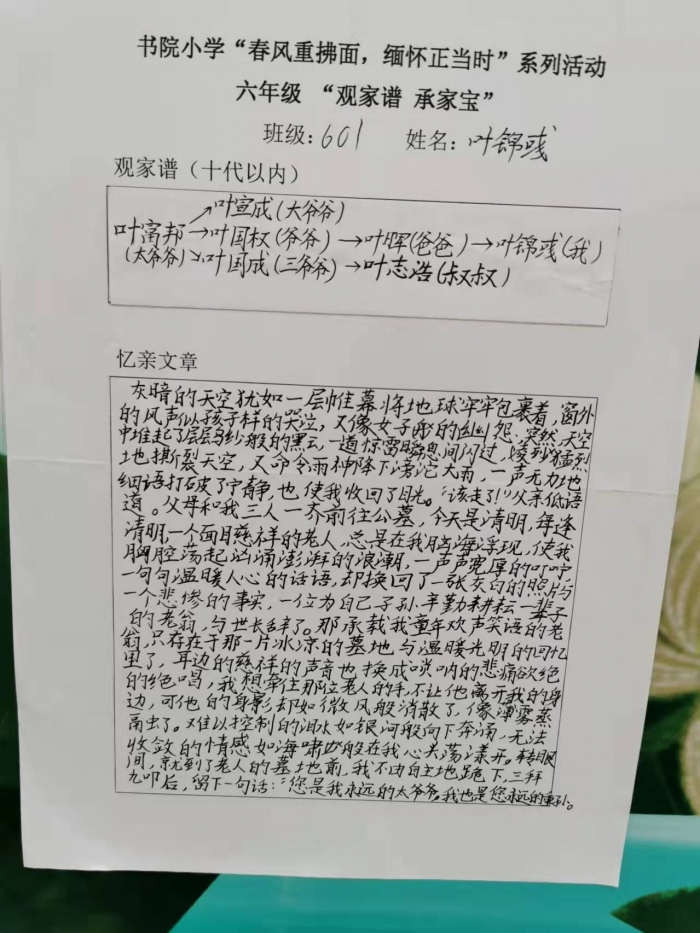 书院小学“春风重拂面，缅怀正当时”系列活动
六年级 “观家谱 承家宝”
班级：601 姓名：叶锦彧
观家谱（十代以内）
叶宣成（大爷爷）
叶富邦→叶国权（爷爷）→叶晖（爸爸）→叶锦彧（我）
（太爷爷）叶国成（三爷爷）→叶志浩（叔叔）
忆亲文章
灰暗的天空犹如一层帷幕将地球牢牢包裹着，窗外
的风声似孩子样的哭泣，又像女子般的幽怨。突然，天空
中堆起了层层乌纱般的黑云，一道惊雷瞬息间闪过，凌到猛烈
地撕裂天空，又命令雨神降下滂沱大雨，一声无力地
细语打破了宁静，也使我收回了目光。“该走了！”父亲低语
道。父母和我三人一齐前往公墓，今天是清明，每逢
清明，一个面目慈祥的老人，总是在我脑海浮现，使我
胸腔荡起汹涌澎湃的浪潮，一声声宽厚的叮咛，
一句句温暖人心的话语，却换回了一张灰白的照片与
一个悲惨的事实，一位为自己子孙辛勤耕耘一辈子
的老翁，与世长辞了。那承载我童年欢声笑语的老
翁，只存在于那一片冰凉的墓地与温暖光明的回忆
里了，耳边的慈祥的声音也换成唢呐的悲痛欲绝
的绝唱，我想牵住那位老人的手，不让他离开我的身
边，可他的身影却如微风般消散了，像薄雾蒸
融了。难以控制的泪水如银河般向下奔涌，无法
收敛的情感如海啸般在我心头荡漾开。转眼
间，就到了老人的墓地前，我不由自主地跪下，三拜
九叩后，留下一句话：“您是我永远的太爷爷，我也是您永远的重孙。